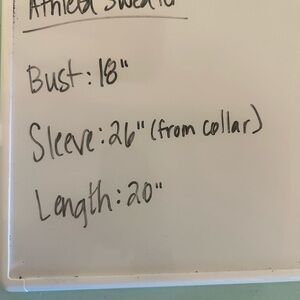 Athleta Sweater
Bust: 18"
Sleeve: 26" (from collar)
Length: 20"